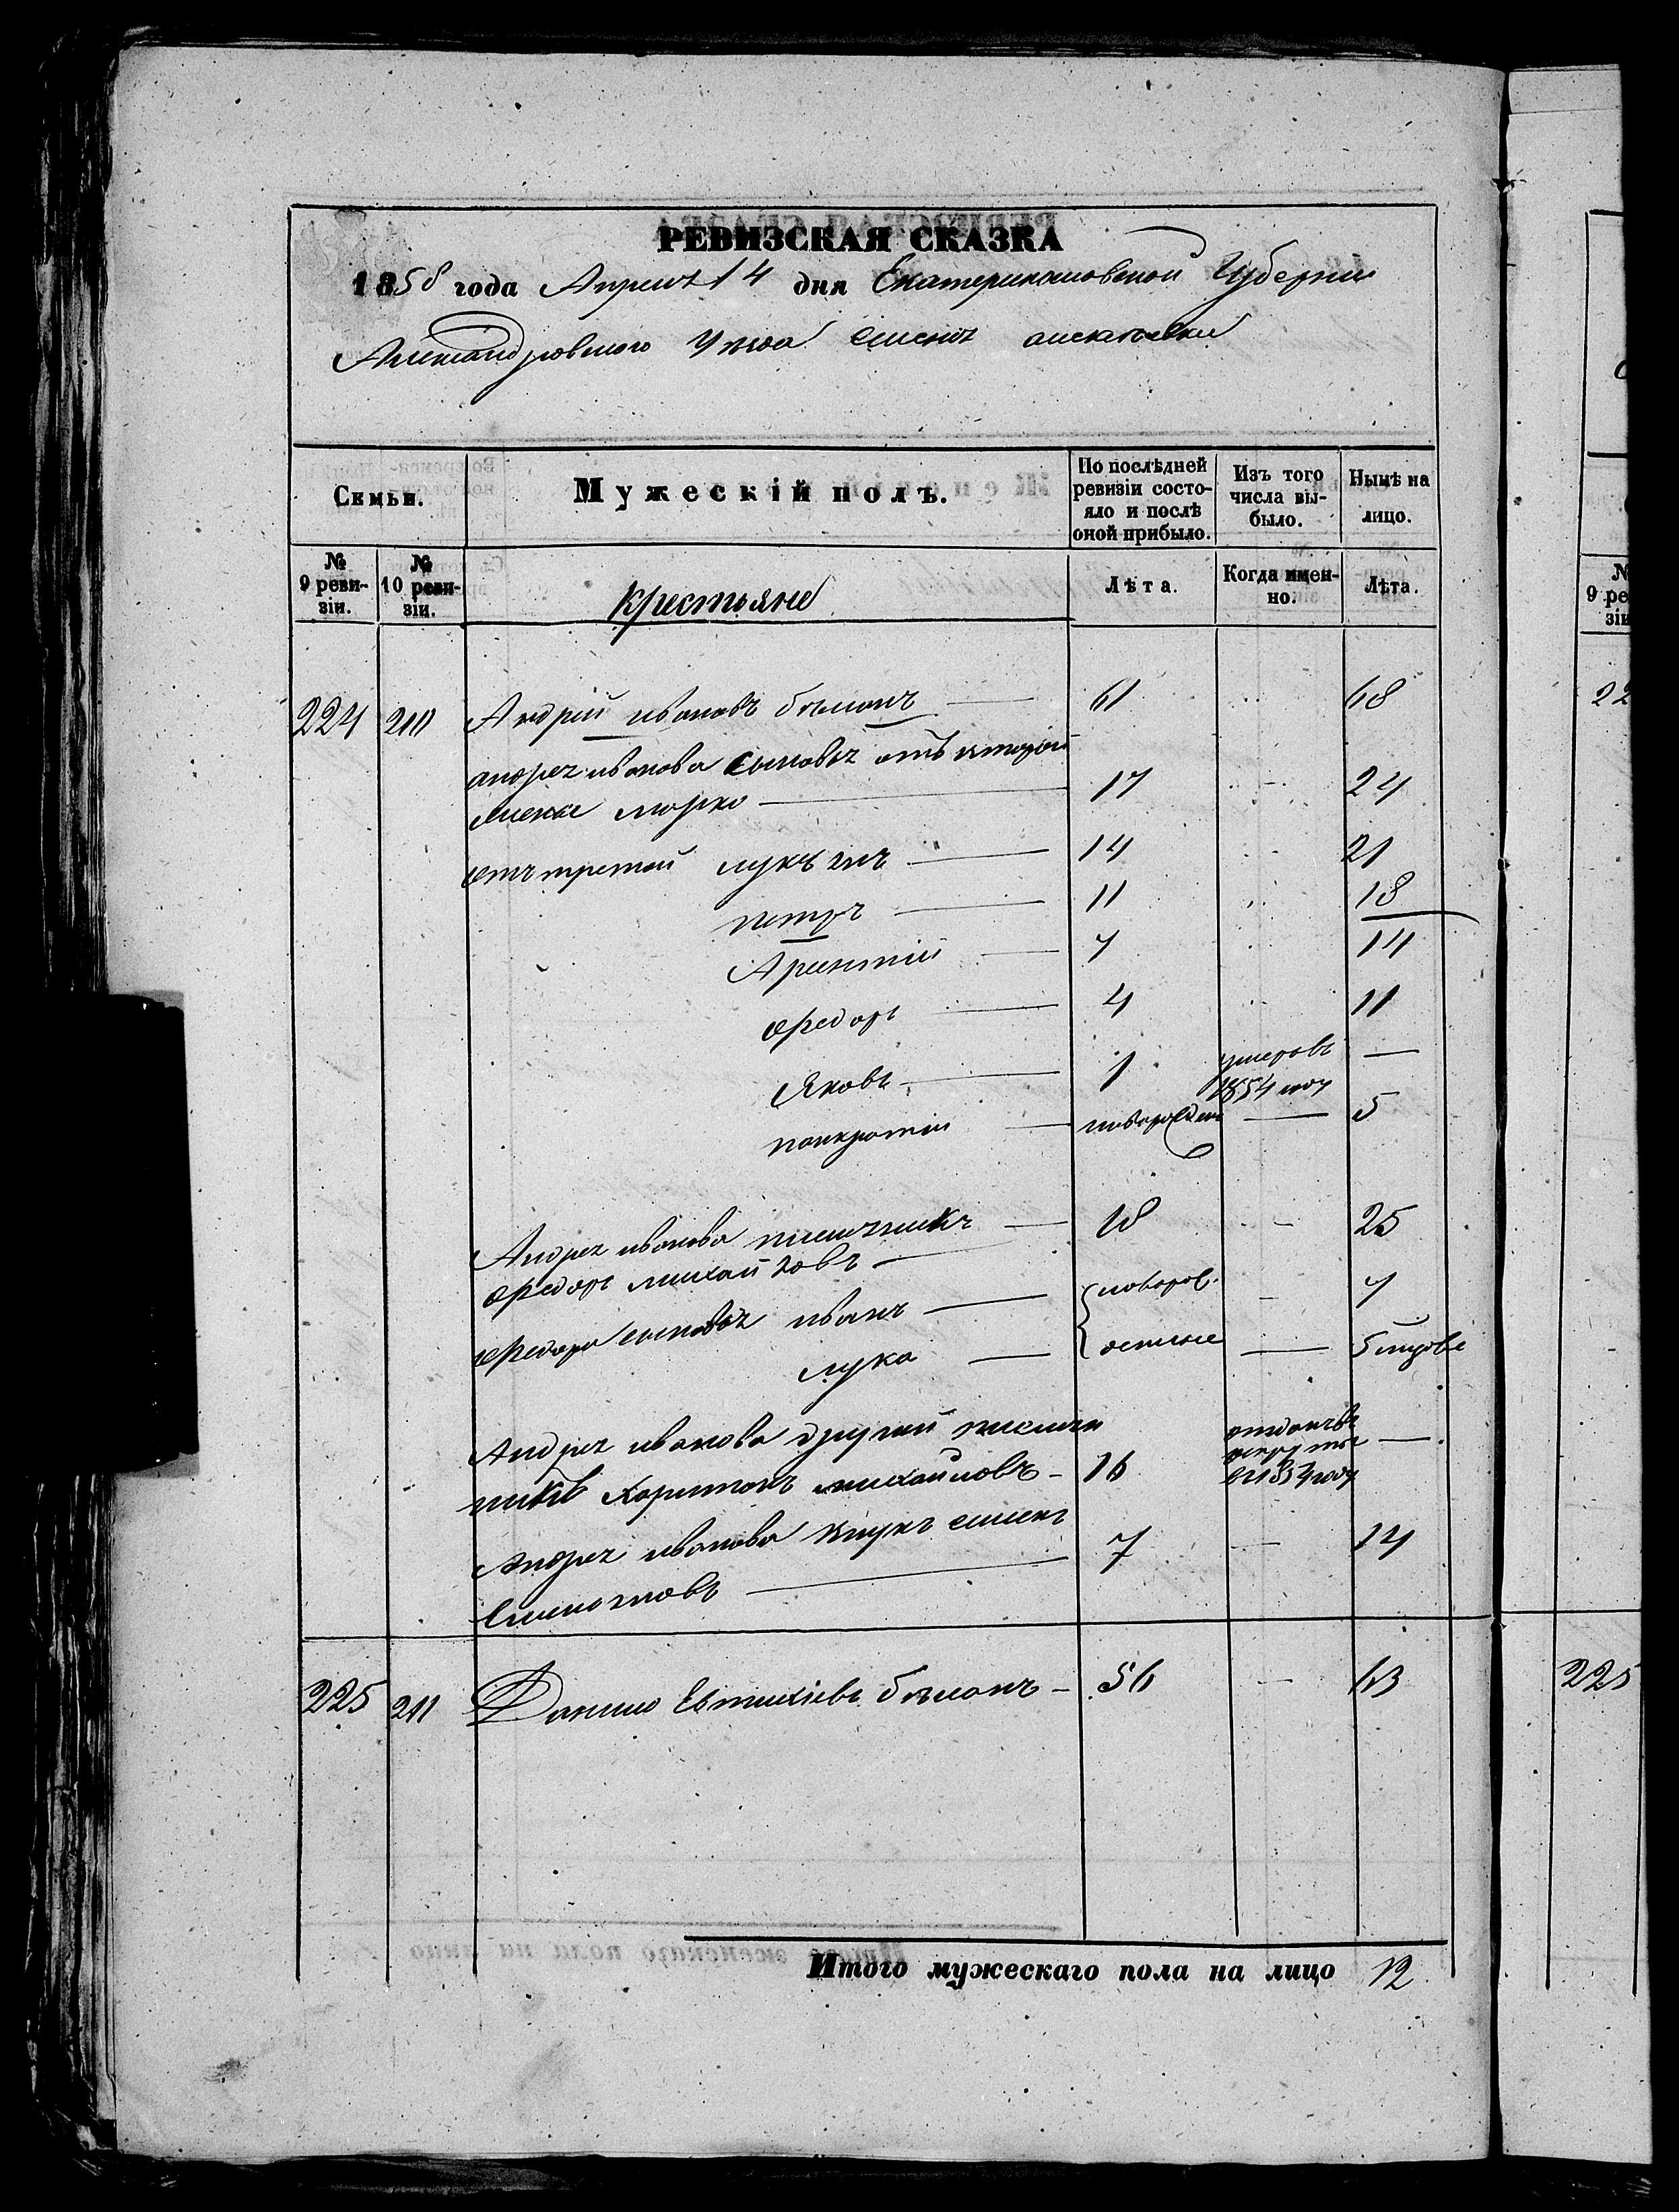 РЕВИЗСКАЯ СКАЗКА
1858 года Апреля 14 дня Екатеринославской Губернии
Александровского Уезда
Семьи. Мужескій полъ. По послѣдней ревизіи состояло и послѣ оной прибыло. Изъ того числа выбыло. Нынѣ на лицо.
№ 9 ревизіи. № 10 ревизіи. Крестьяне Лѣта. Когда именно. Лѣта.
224 210 Андрій ивановъ 61 68
андрея иванова сыновья отъ второй
жены марко 17 24
отъ третей лукъянъ 14 21
петръ 11 18
Арентій 7 14
Федоръ 4 11
Яковъ 1 умеръ въ 1854 году —
панкратій новорожден — 5
Андрея иванова племянникъ 18 25
Федоръ михайловъ
Федора сыновья иванъ новорож. 7
лука — 5
Андрея иванова другий племян
никъ Харитонъ михайловъ 16 отданъ въ рекруты въ 1854 году —
Андрея иванова внукъ семенъ 7 14
225 211 Данило Евтихіевъ 56 63
Итого мужескаго пола на лицо 12
№
9 ре
зіи
22
225